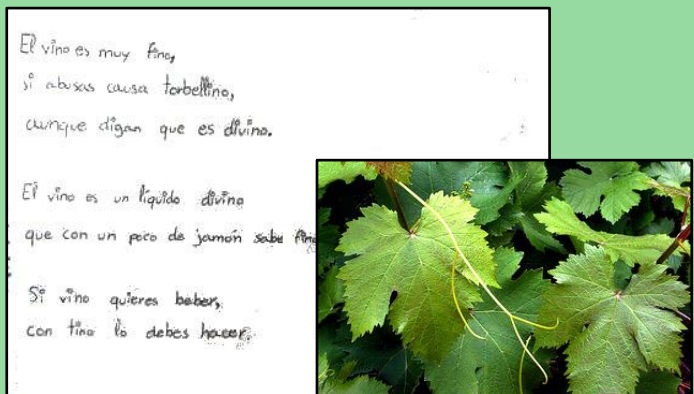 El vino es muy fino,
si abusas causa torbellino,
aunque digan que es divino.
El vino es un líquido divino
que con un poco de jamón sabe fino
Si vino quieres beber,
con tino lo debes hacer.